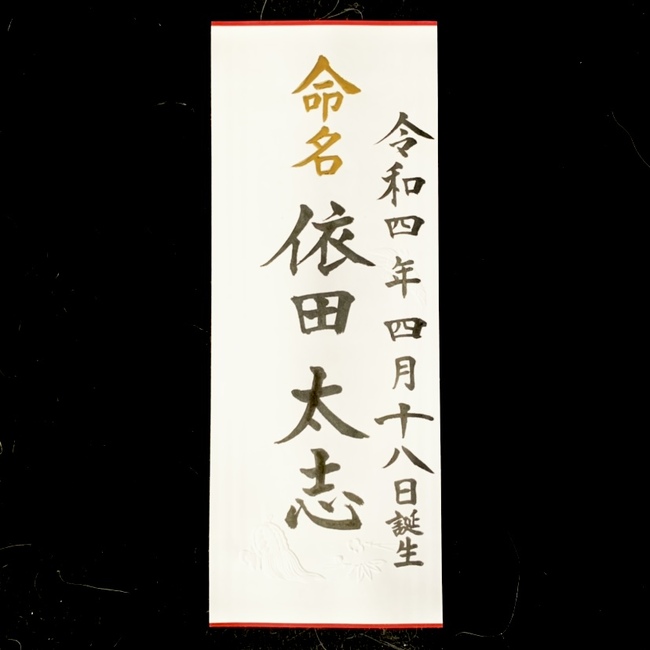 令和四年四月十八日誕生
命名
依田太志